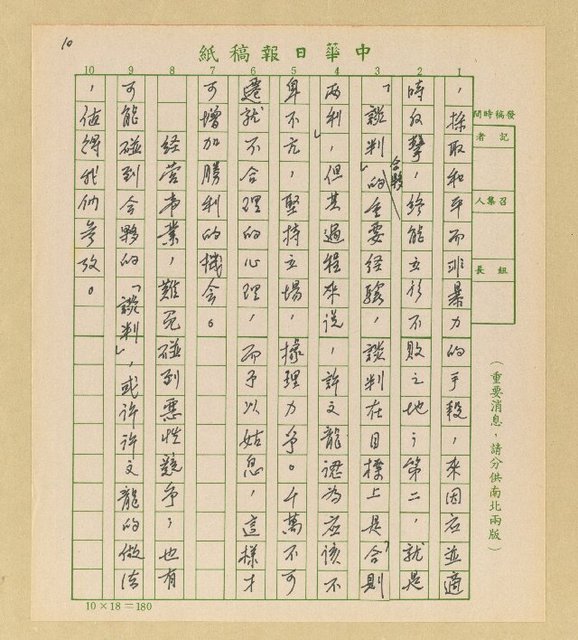 10
中華日報稿紙
發稿時間
記者
召集人
組長
(重要消息,請分供南北兩版)
1 2 3 4 5 6 7 8 9 10
,採取和平而非暴力的手段,來因應並適
時反擊,終能立於不敗之地;第二,就是
「談判」的合夥重要經驗,談判在目標上是「合則
兩利」,但其過程來說,許文龍認為應該不
卑不亢,堅持立場,據理力爭。千萬不可
遷就不合理的心理,而予以姑息,這樣才
可增加勝利的機會。
經營事業,難免碰到惡性競爭;也有
可能碰到合夥的「談判」,或許許文龍的做法
,值得我們參攷。
10×18=180